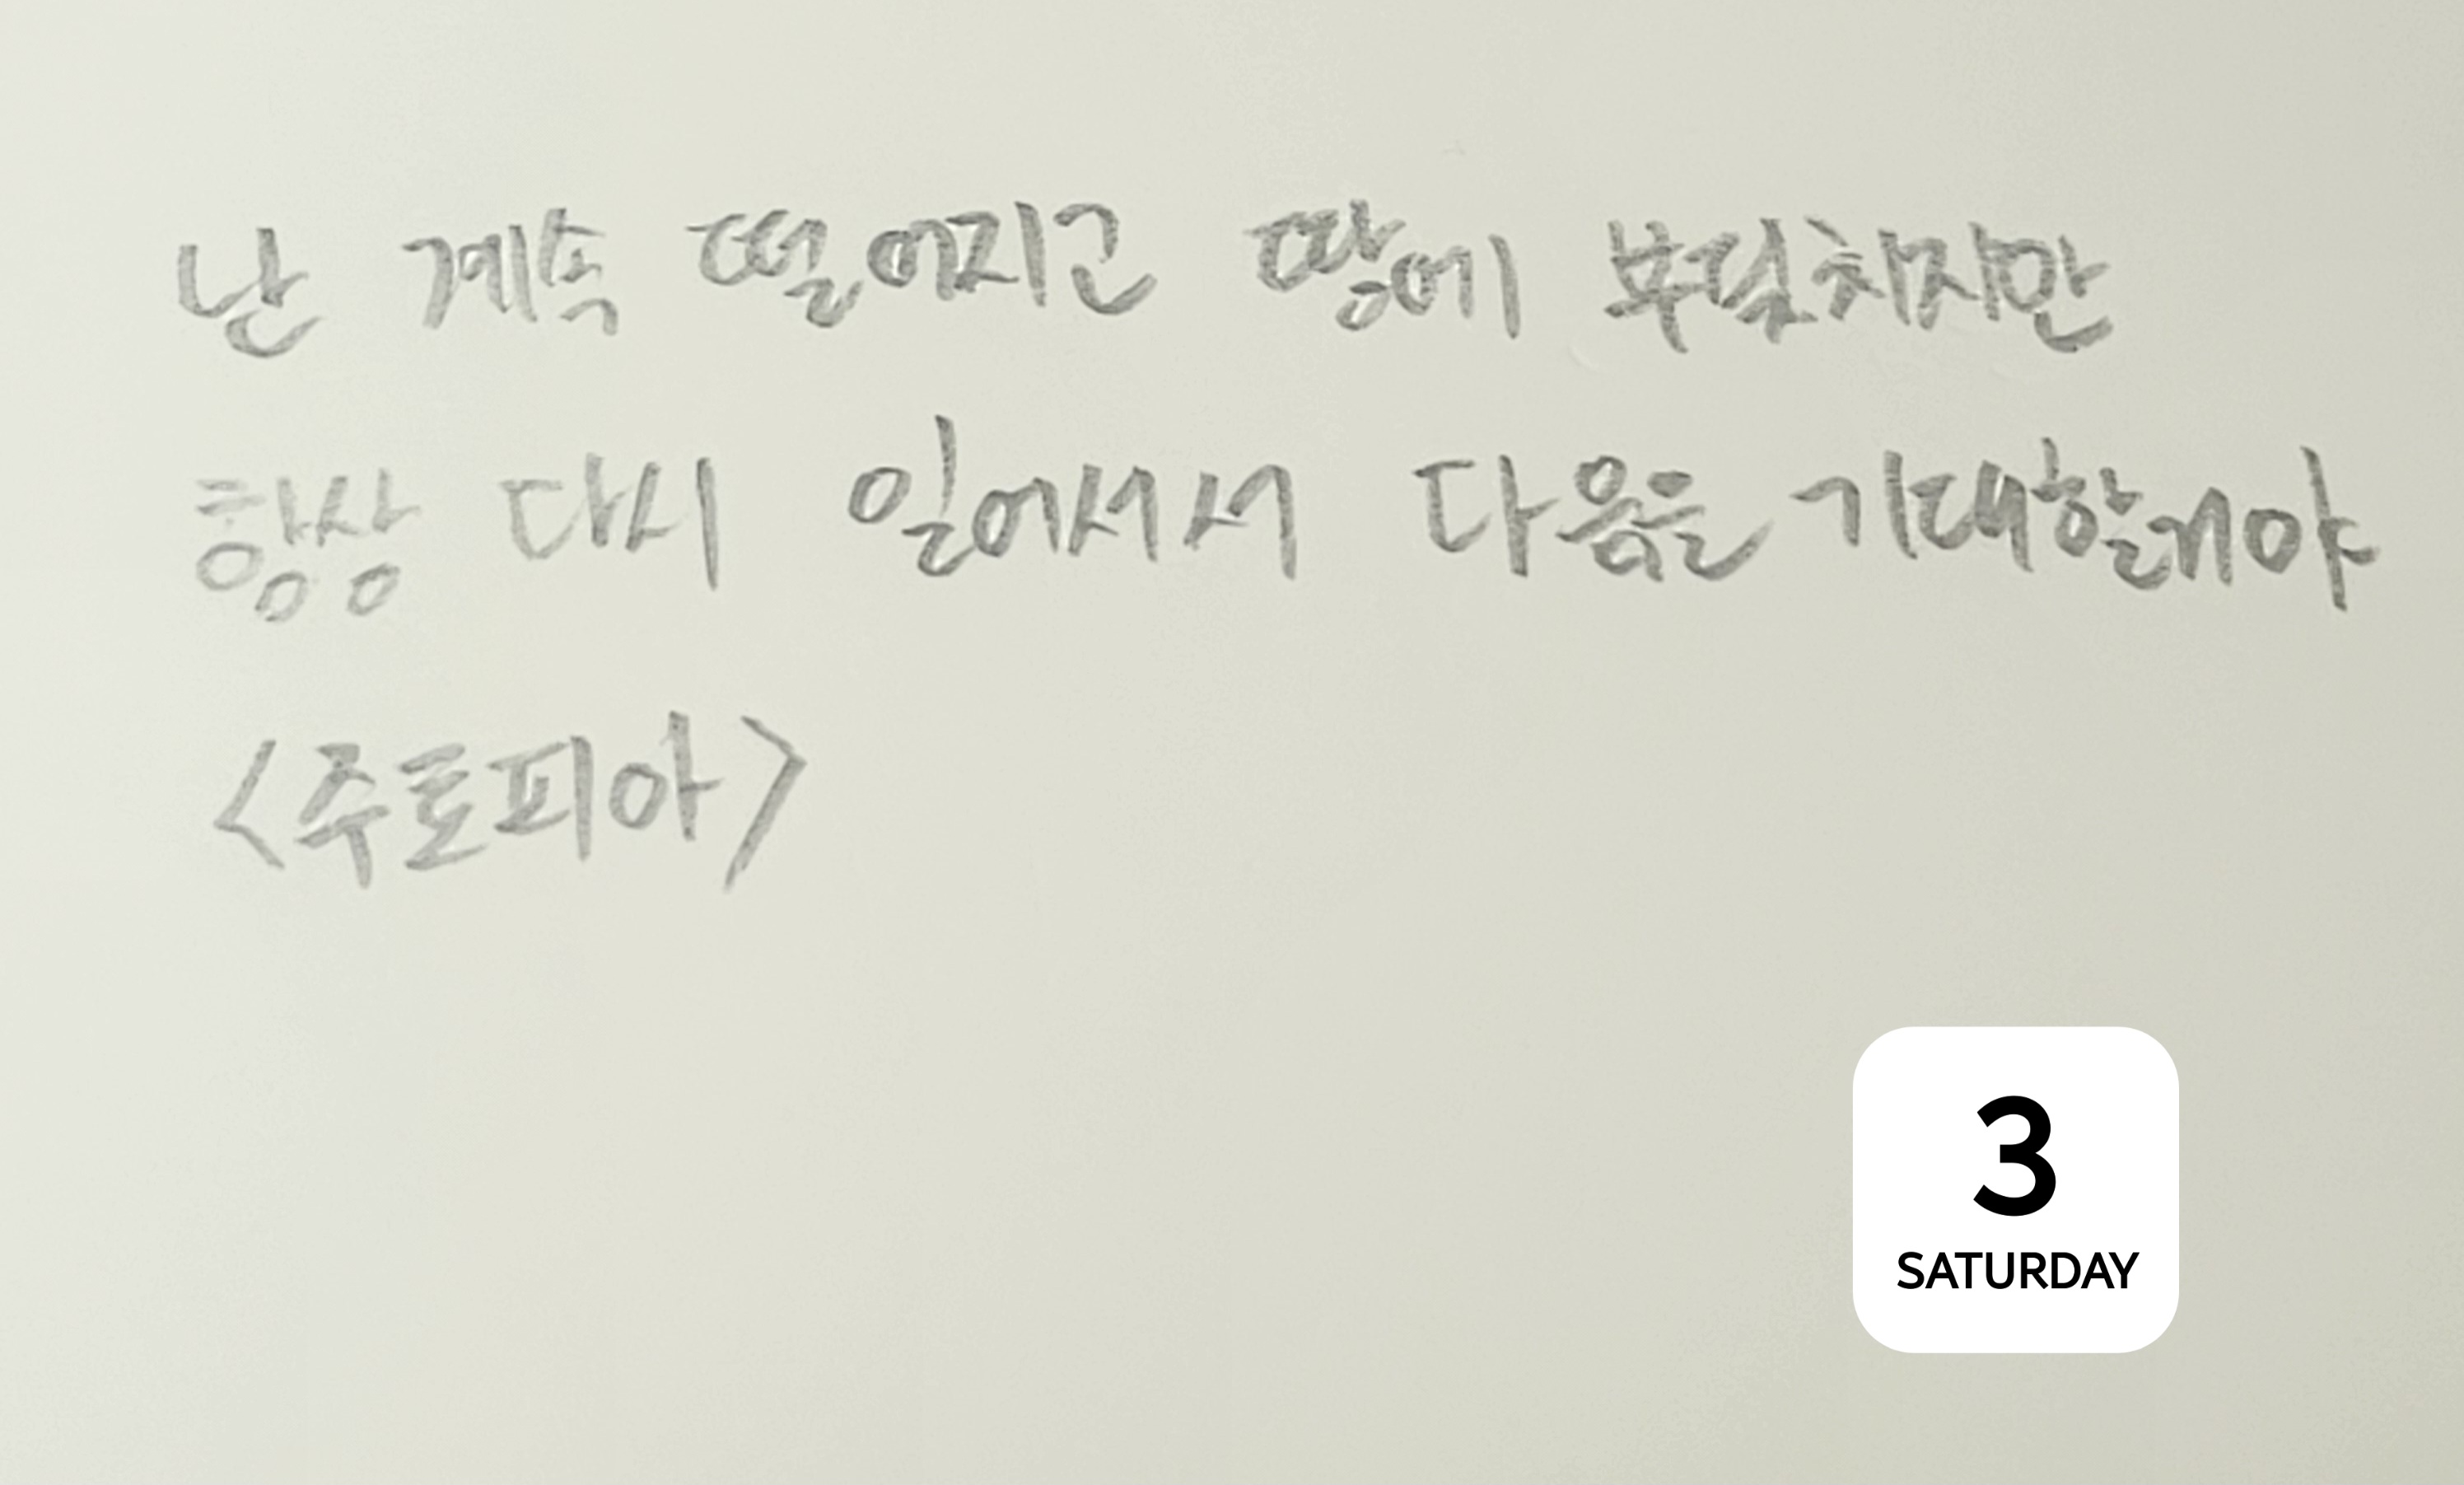 난 계속 떨어지고 땅에 부딪치지만
항상 다시 일어서서 다음을 기대할거야
<주토피아>
3
SATURDAY